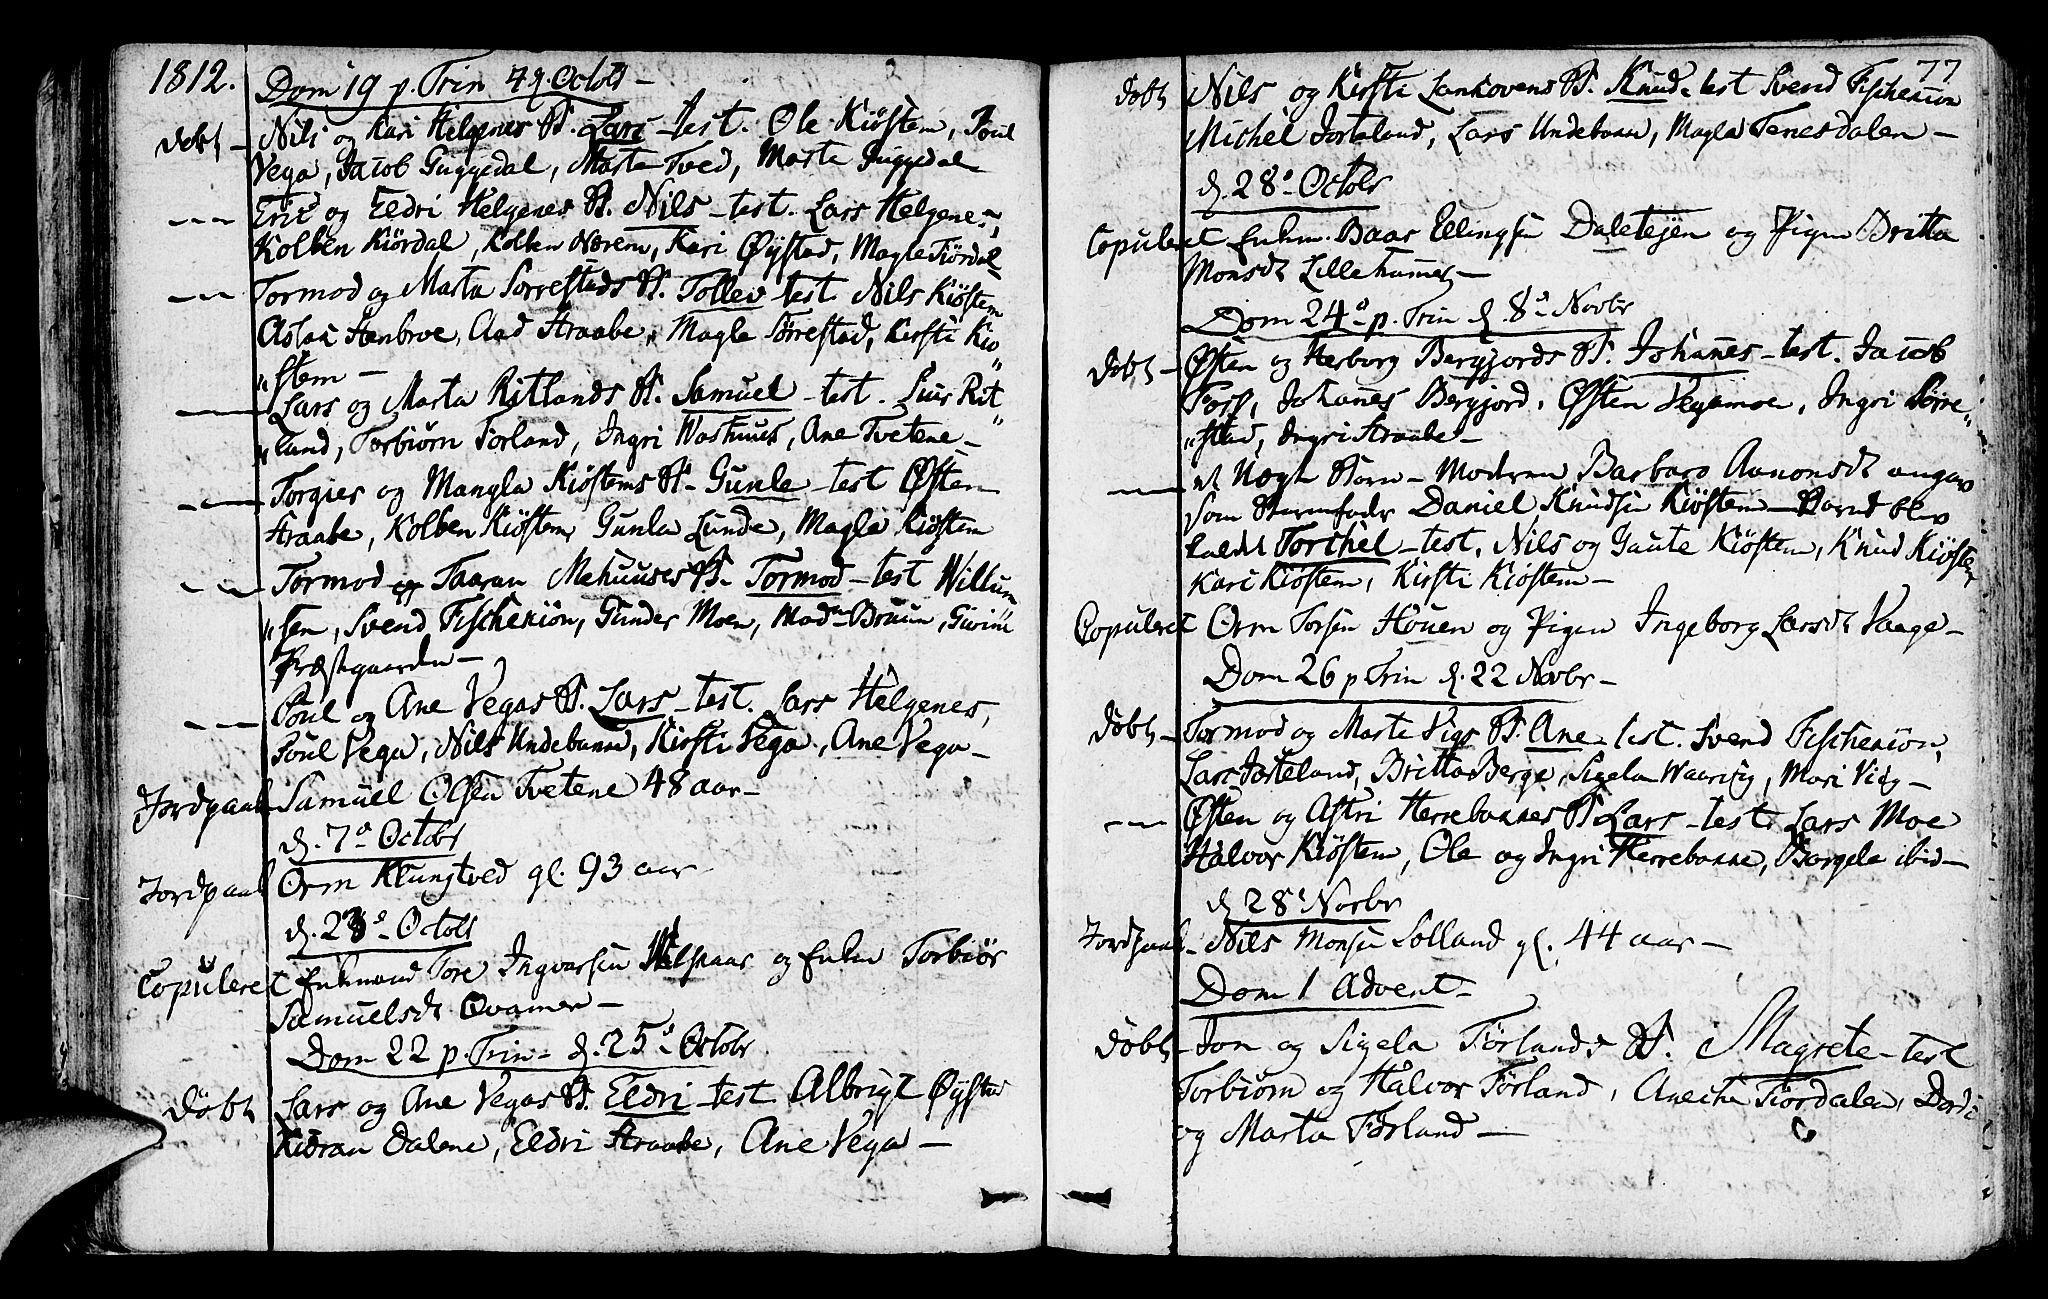 1812.
Dom 19 p. Trin 4d. Octob
Døbt - Nils og Kari Helgenes B. Lars - test. Ole Kiøstem, Poul
Vega, Jacob Guggedal, Marta Tved, Marta Guggedal
--- Eric og Eldri Helgenes B. Nils - test. Lars Helgenes,
Kolben Kiørdal, Kolben Nærem, Kari Øystad, Magle Fiørdal
--- Tormod og Marta Sørrestads B. Tollev test Nils Kiøstem
Aslak Stenbroe, Aad Straabe, Magla Sørrestad, Kirsti Kiø„
„stem -
— Lars og Marta Ritlands B. Samuel - test. Siur Rit„
„land, Torbiørn Førland, Ingri Washuus, Ane Tvetene -
— Torgier og Mangla Kiøstems B. Gunla - test Østen
Straabe, Kolben Kiøstem, Gunla Lunde, Magla Kiøstem
--- Tormod og Taaran Mehuuses B. Tormod - test Willum
„sen, Svend Fischexiøn, Gunder Moen, Madm Bruun, Givini
Præstgaarden -
--- Poul og Ane Vegas B. Lars - test. Lars Helgenes,
Poul Vega, Nils Undebakke, Kirsti Vega, Ane Vega -
Jordpaak Samuel Olsen Tvetene 48 aar -
d. 7de Octobr
Jordpaak Orm Klungtved gl. 93 aar -
d. 23de Octob
Copuleret Enkemand Tore Ingvarsen Helspaar og Enken Torbiør
Samuelsdt Qvamen -
Dom 22 p. Trin - d. 25de Octobr
Døbt Lars og Ane Vegas B. Eldri - test Albrigt Øystad
Kidran Dalene, Eldri Straabe, Ane Vega -
77
Døbt Nils og Kirsti Lankovens B. Knud - test Svend Fischexiøn
Michel Jorteland, Lars Undebakke, Magla Tenesdalen -
d. 28de Octobr
Copuleret Enkem. Baar Ellingsen Daletejen og Pigen Britta
Monsdt Lillehamer -
Dom 24de p. Trin d. 8de Novbr
Døbt - Østen og Herborg Bergjords B. Johanes - test. Jacob
Foss, Johanes Bergjord, Østen Vegamoe, Ingri Sørre„
„stad, Ingri Straabe -
— et Uægte Barn - Moderen Barbaro Aanonsdt angav
som Barnefader Daniel Knudsen Kiøstem - Barnet blev
kaldet Torchel - test. Nils og Gaute Kiøstem, Knud Kiøstem
Kari Kiøstem, Kirsti Kiøstem -
Copuleret Orm Torsen Houen og Pigen Ingeborg Larsdt Vaage -
Dom 26 p Trin d. 22 Novbr -
Døbt - Tormod og Marte Vigs B. Ane - test. Svend Fischexiøn,
Lars Jorteland, Britta Berge, Sigela Waarvig, Mari Vig -
--- Østen og Astri Herrebakkes B. Lars - test Lars Moe
Halvor Kiøstem, Ole og Ingri Herrebakke, Bargela ibid -
d 28de Novbr
Jordpaak - Nils Monsen Solland gl. 44 aar -
Dom 1 Advent -
Døbt - Jon og Sigela Førlands B. Magrete - test
Torbiørn og Halvor Førland, Anecha Fiordalen, Dordi
og Marta Førland -